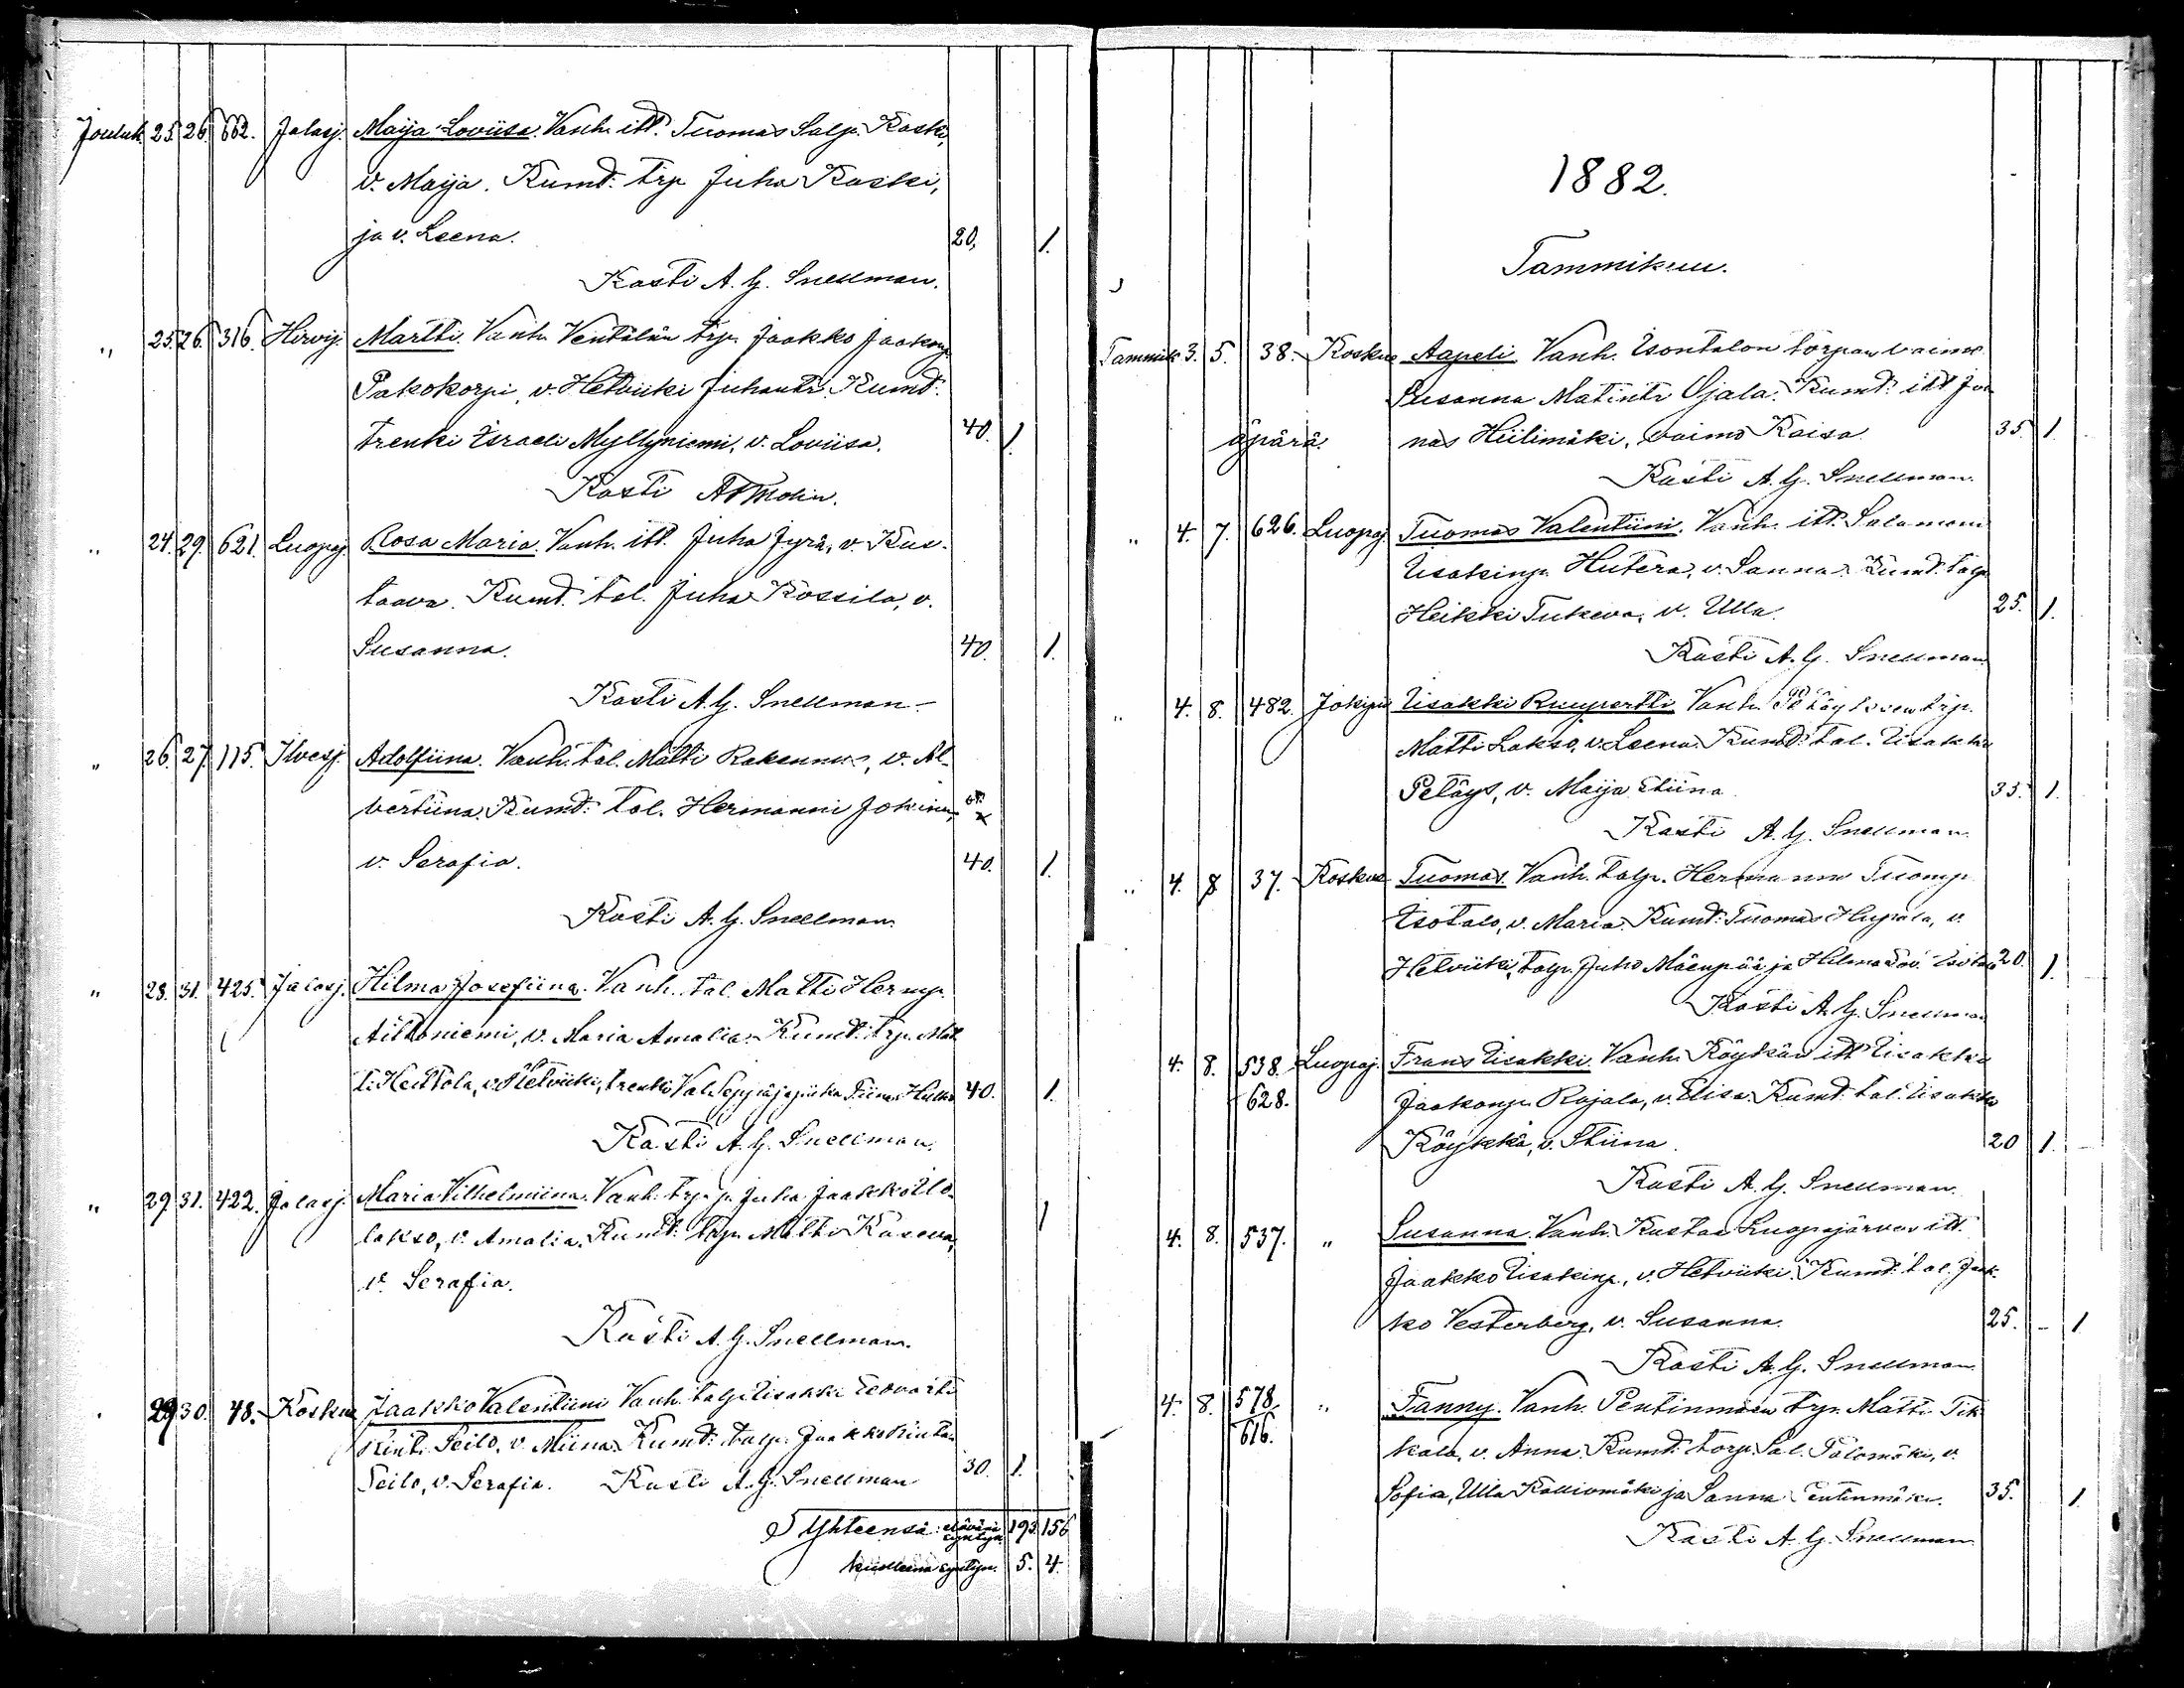 Jouluk. 25. 26. 662. Jalasj. Maija Loviisa. Vanh. itt. Tuomas Salp. Koski,
v. Maija. Kumd: trp Juha Koski,
ja v. Leena. 20, 1.
Kasti A. G. Snellman.
" 25. 26. 316. Hirvij. Martti. Vanh. Ventälän trp. Jaakko Jaakonp
Pakokorpi, v. Helviiki Juhantr. Kumd:
trenki Israeli Myllyniemi, v. Loviisa. 40. 1.
Kasti
" 24. 29. 621. Luopaj. Rosa Maria. Vanh. itt. Juha Jyrä, v. Kus-
taava. Kumd: tal. Juha Kossila, v.
Susanna. 40. 1.
Kasti A. G. Snellman
" 26. 27. 115. Ilvesj. Adolfiina. Vanh. tal. Matti Rakennus, v. Al-
bertiina. Kumd: tal. Hermanni
v. Serafia. 40. 1.
Kasti A. G. Snellman.
" 28. 31. 425. Jalasj. Hilma Josefiina. Vanh. tal. Matti Hermp.
Aittoniemi, v. Maria Amalia. Kumd: trp. Mat
ti Heittola, v. Helviiki, trenki Val. Seppä ja piika Tiina 40. 1.
Kasti A. G. Snellman.
" 29. 31. 422. Jalasj. Maria Vilhelmiina. Vanh. trp. p. Juha Jaakko Ulo- 1
lakso, v. Amalia. Kumd: trp. Matti
v. Serafia.
Kasti A. G. Snellman.
29 30. 48. Koskue Jaakko Valentiini Vanh. talp. Iisakki
Seilo, v. Miina. Kumd: talp. Jaakko
Seilo, v. Serafia. Kasti A. G. Snellman 30. 1.
Yhteensä: elävänä syntyn. 193. 156
kuolleena syntyn. 5. 4.
1882.
Tammikuu.
Tammik. 3. 5. 38. Koskue Aapeli. Vanh. Isontalon torpan vaimo
Susanna Matintr Ojala. Kumd: itt Joo
äpärä. nas Hiilimäki, vaimo Kaisa. 35. 1.
Kasti A. G. Snellman.
" 4. 7. 626. Luopaj. Tuomas Valentiini. Vanh. itt. Salamoni
Iisakinp. Hutera, v. Sanna. Kumd: talp
Heikki Tukeva, v. Ulla. 25. 1.
Kasti A. G. Snellman
" 4. 8. 482. Jokipii Iisakki Ruupertti Vanh. trp.
Matti Lakso, v. Leena. Kumd: tal. Iisakki
Petäys, v. Maija Stiina. 35. 1.
Kasti A. G. Snellman.
" 4. 8 37. Koskue Tuomas. Vanh. talp. Hermanni Tuomp
Isotalo, v. Maria. Kumd: Tuomas Hupala, v.
Helviiki, talp. Juho Mäenpää ja Hilma 20. 1.
Kasti A. G. Snellman
4. 8. 538. Luopaj. Frans Iisakki. Vanh. Köykän itt Iisakki
628. Jaakonp. Rajala, v. Elisa. Kumd: tal. Iisakki
Köykkä, v. Stiina. 20 1.
Kasti A. G. Snellman.
4. 8. 537. " Susanna. Vanh. Kustaa Luopajärven itt.
Jaakko Iisakinp., v. Helviiki. Kumd: tal. Jaak-
ko Vesterberg, v. Susanna. 25. - 1
Kasti A. G. Snellman
4. 8. 578. " Fanny. Vanh. Pentinmäen trp. Matti Tik-
616. kala, v. Anna. Kumd: torp. Sal. Salomäki, v.
Sofia, Ulla Kalliomäki ja Sanna Pentinmäki. 35. 1
Kasti A. G. Snellman